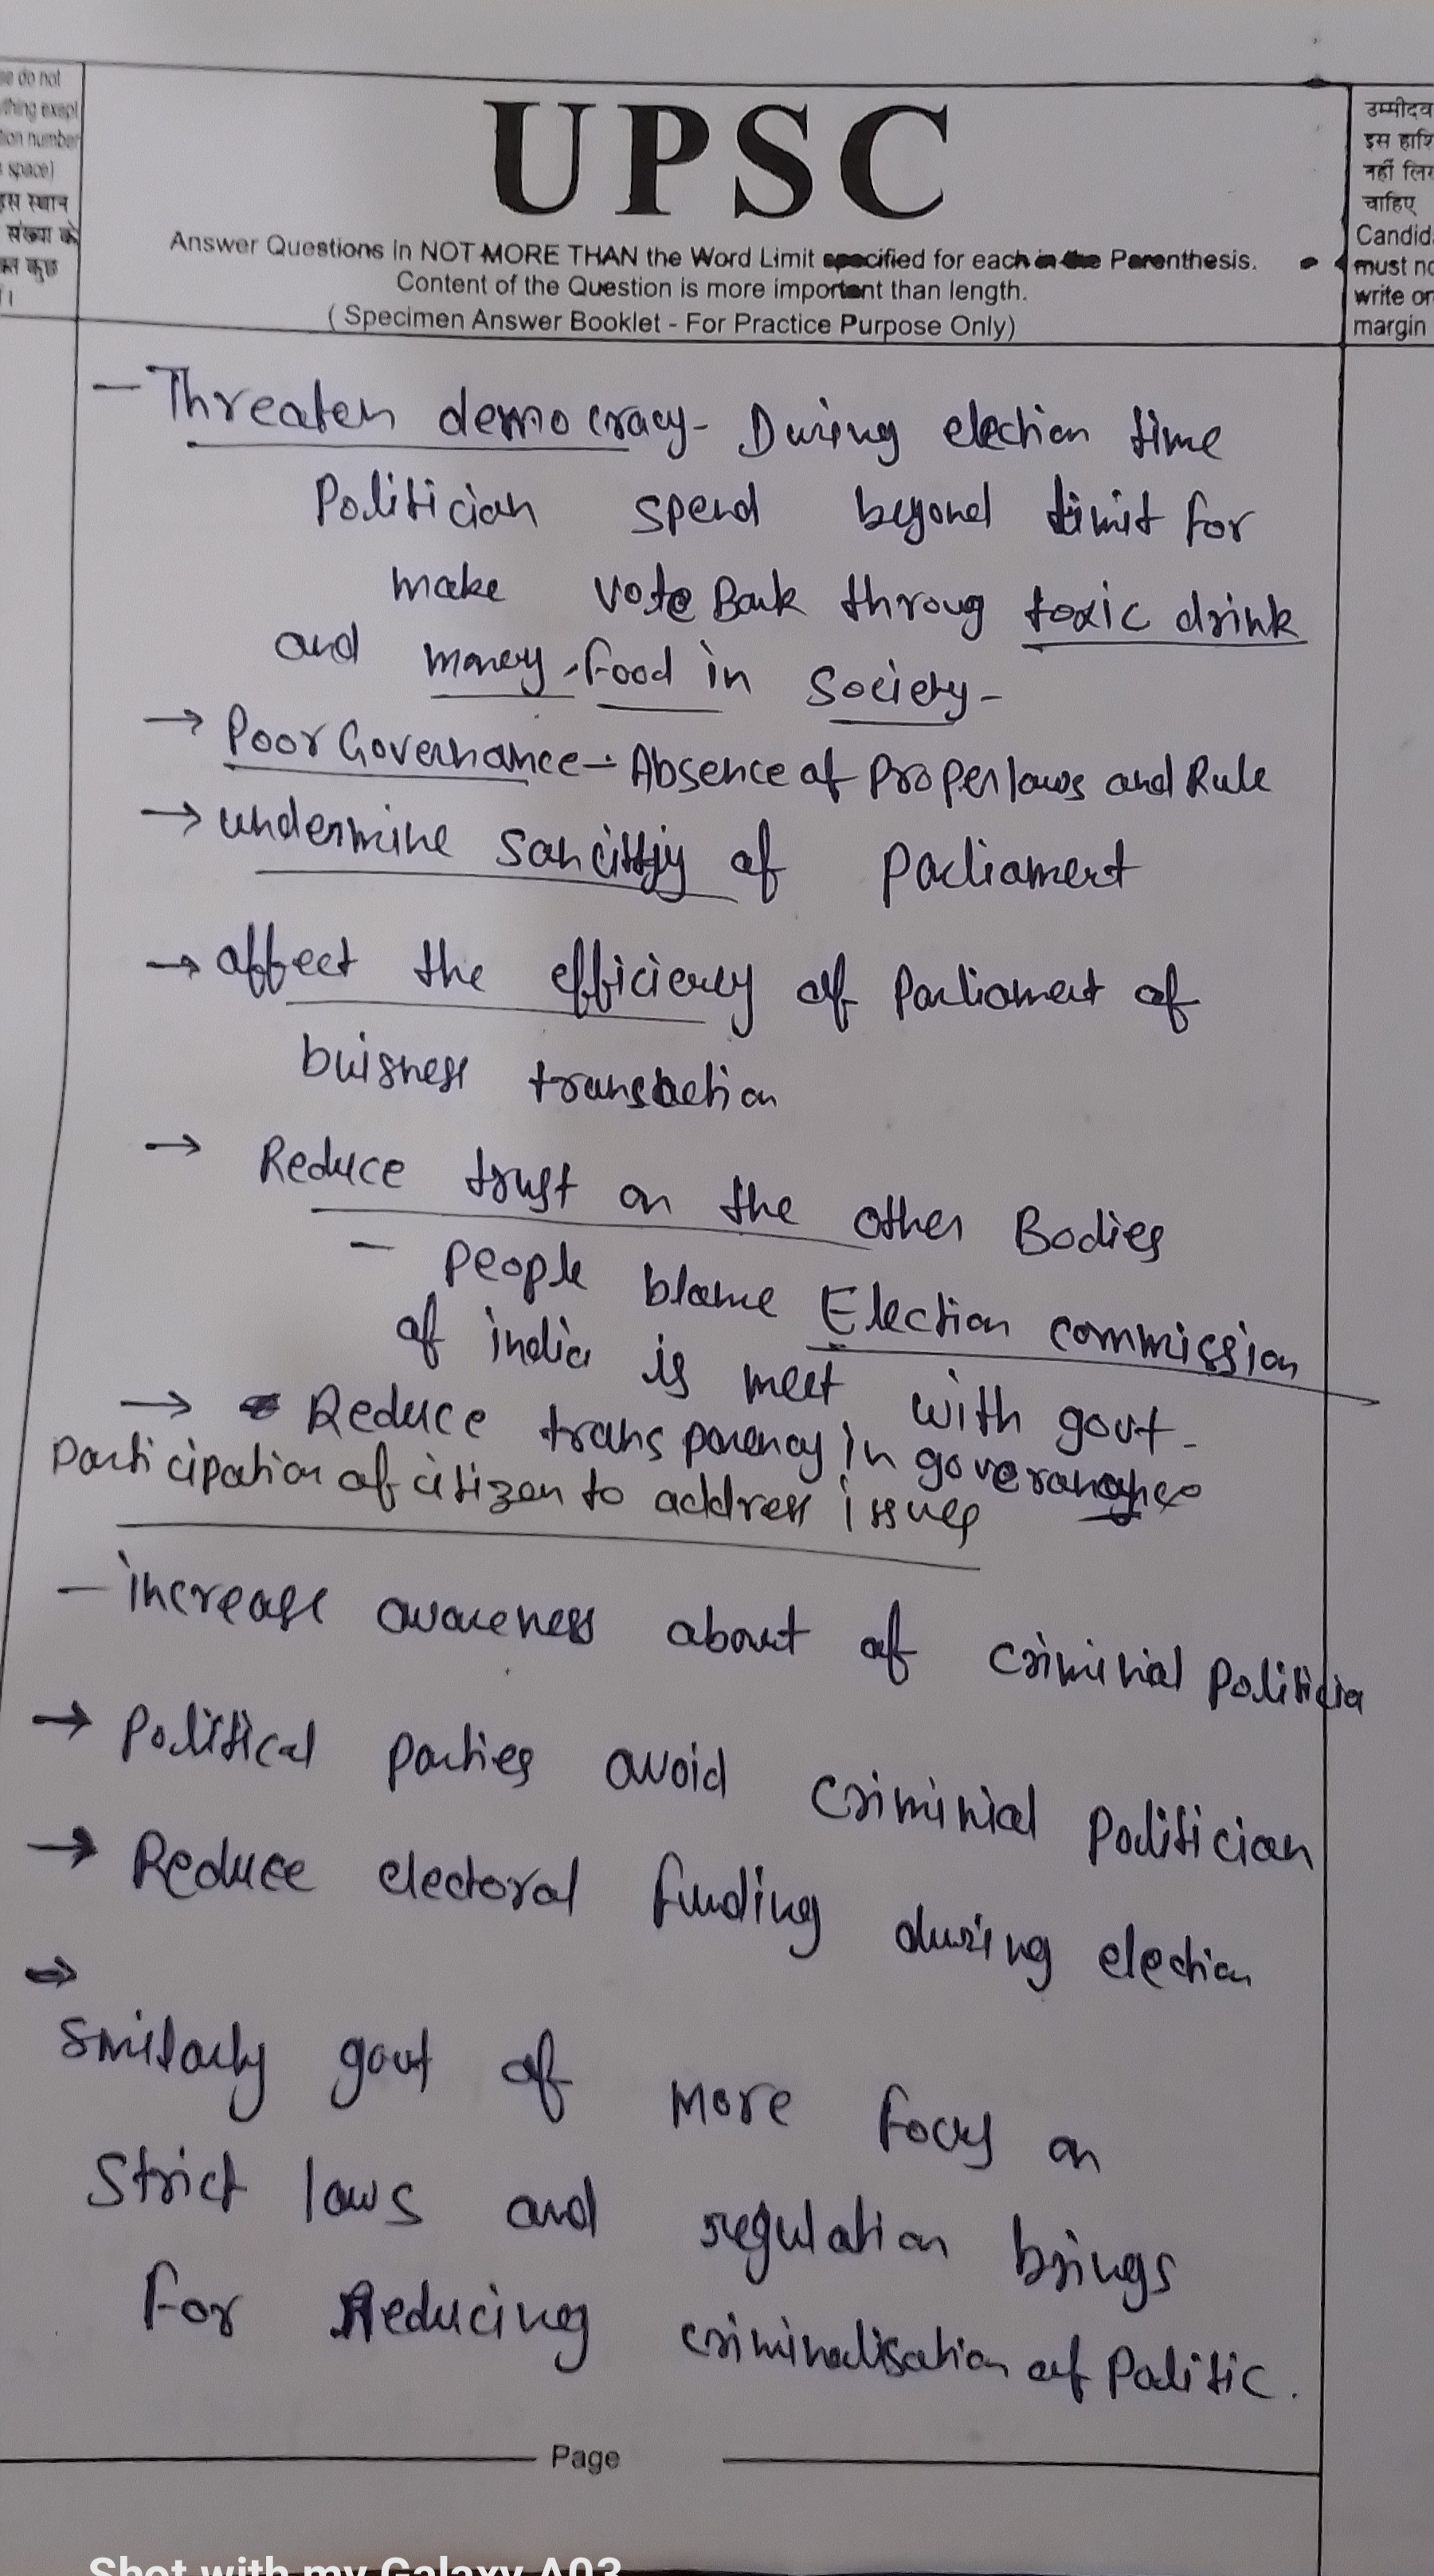 se do not
thing exept
tion number
space)
इस स्थान
संख्या के
क्त कुछ
UPSC
Answer Questions in NOT MORE THAN the Word Limit specified for each in the Parenthesis.
Content of the Question is more important than length.
( Specimen Answer Booklet - For Practice Purpose Only)
उम्मीदव
इस हाशि
नहीं लिख
चाहिए
Candid
must no
write on
margin
- Threaten democracy - During election time
Politician spend beyond limit for
make vote Bank throug toxic drink
and money, food in society -
→ Poor Governance - Absence of Proper laws and Rule
→ undermine of Parliament
→ affect the efficiency of Parliament of
buisness transaction
→ Reduce trust on the other Bodies
- People blame Election commission
of india is meet with govt -
→ Reduce transparency in
Participation of citizen to address issues
- increase awareness about of criminial
→ Political parties avoid criminial Politician
→ Reduce electoral funding during election
⇒
Smilarly govt of more focus on
Strict laws and regulation brings
for Reducing criminalisation of Politic.
Page
Shot with my Galaxy A03